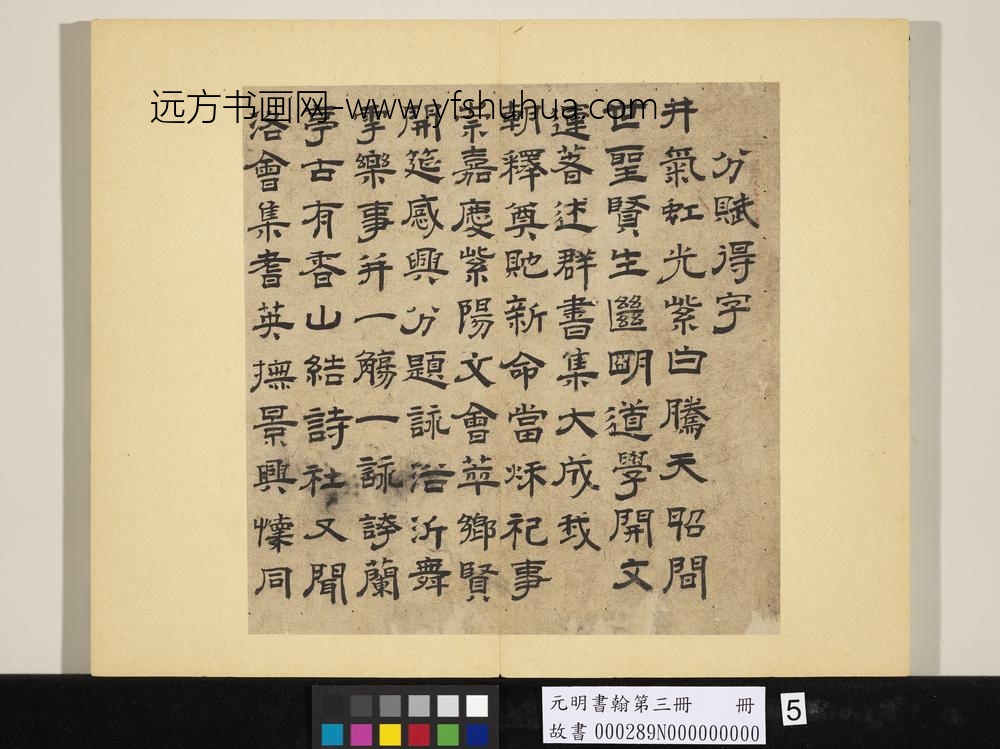 远方书画网-www.yfshuhua.com
分賦得字
井氣虹光紫白騰天昭間
世聖賢生繼明道學開文
運著述群書集大成我
朝釋奠貤新命當秌祀事
崇嘉慶紫陽文會萃鄉賢
開筵感興分題詠浴沂舞
雩樂事并一觴一詠誇蘭
亭古有香山結詩社又聞
洛會集耆英撫景興懷同
元明書翰第三冊 冊
故書 000289N000000000
5